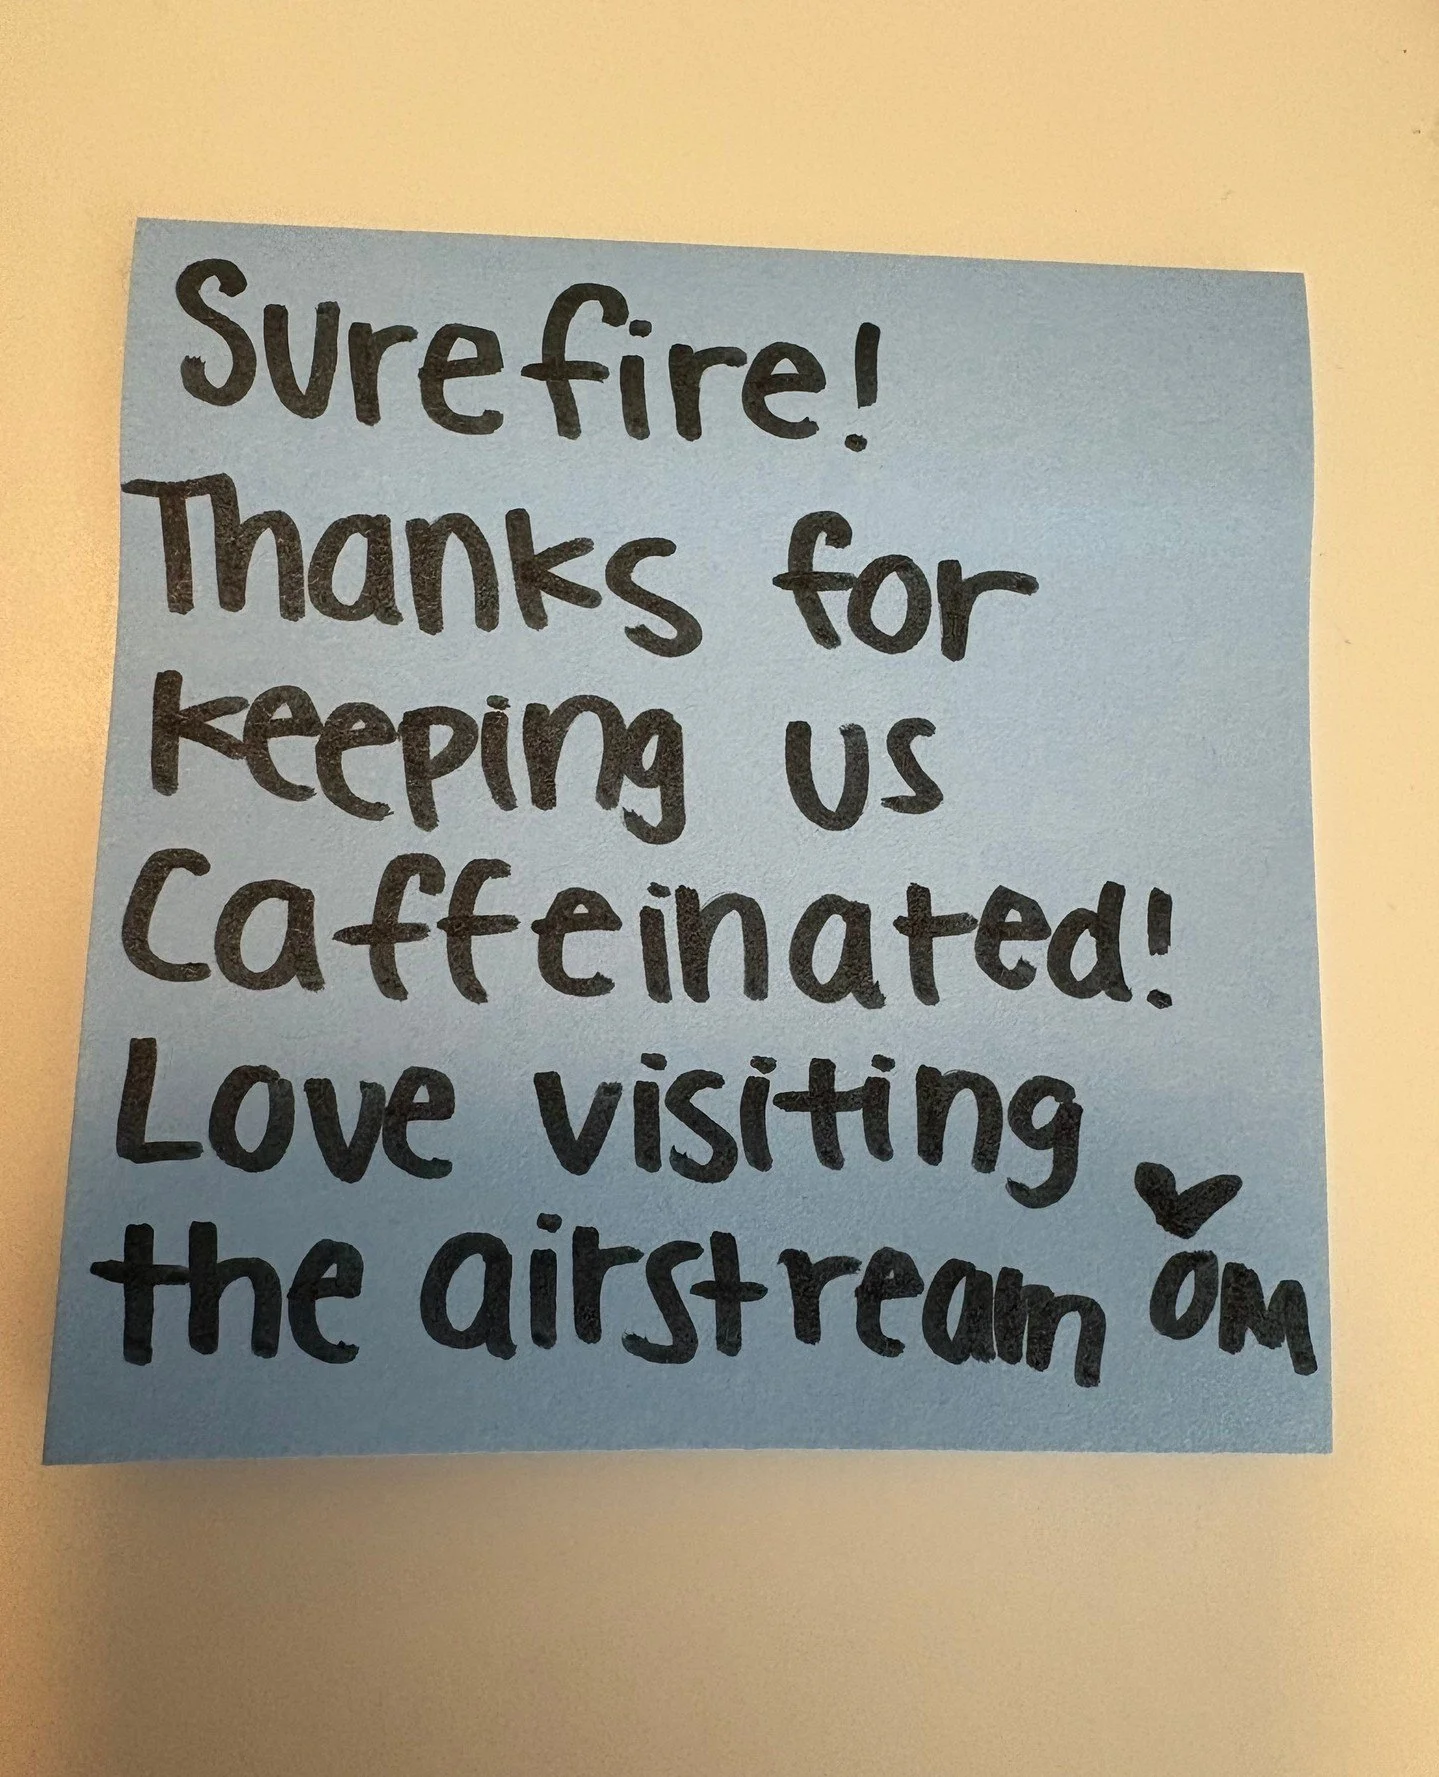 Surefire!
Thanks for
keeping us
Caffeinated!
Love visiting
the airstream ♥
OM